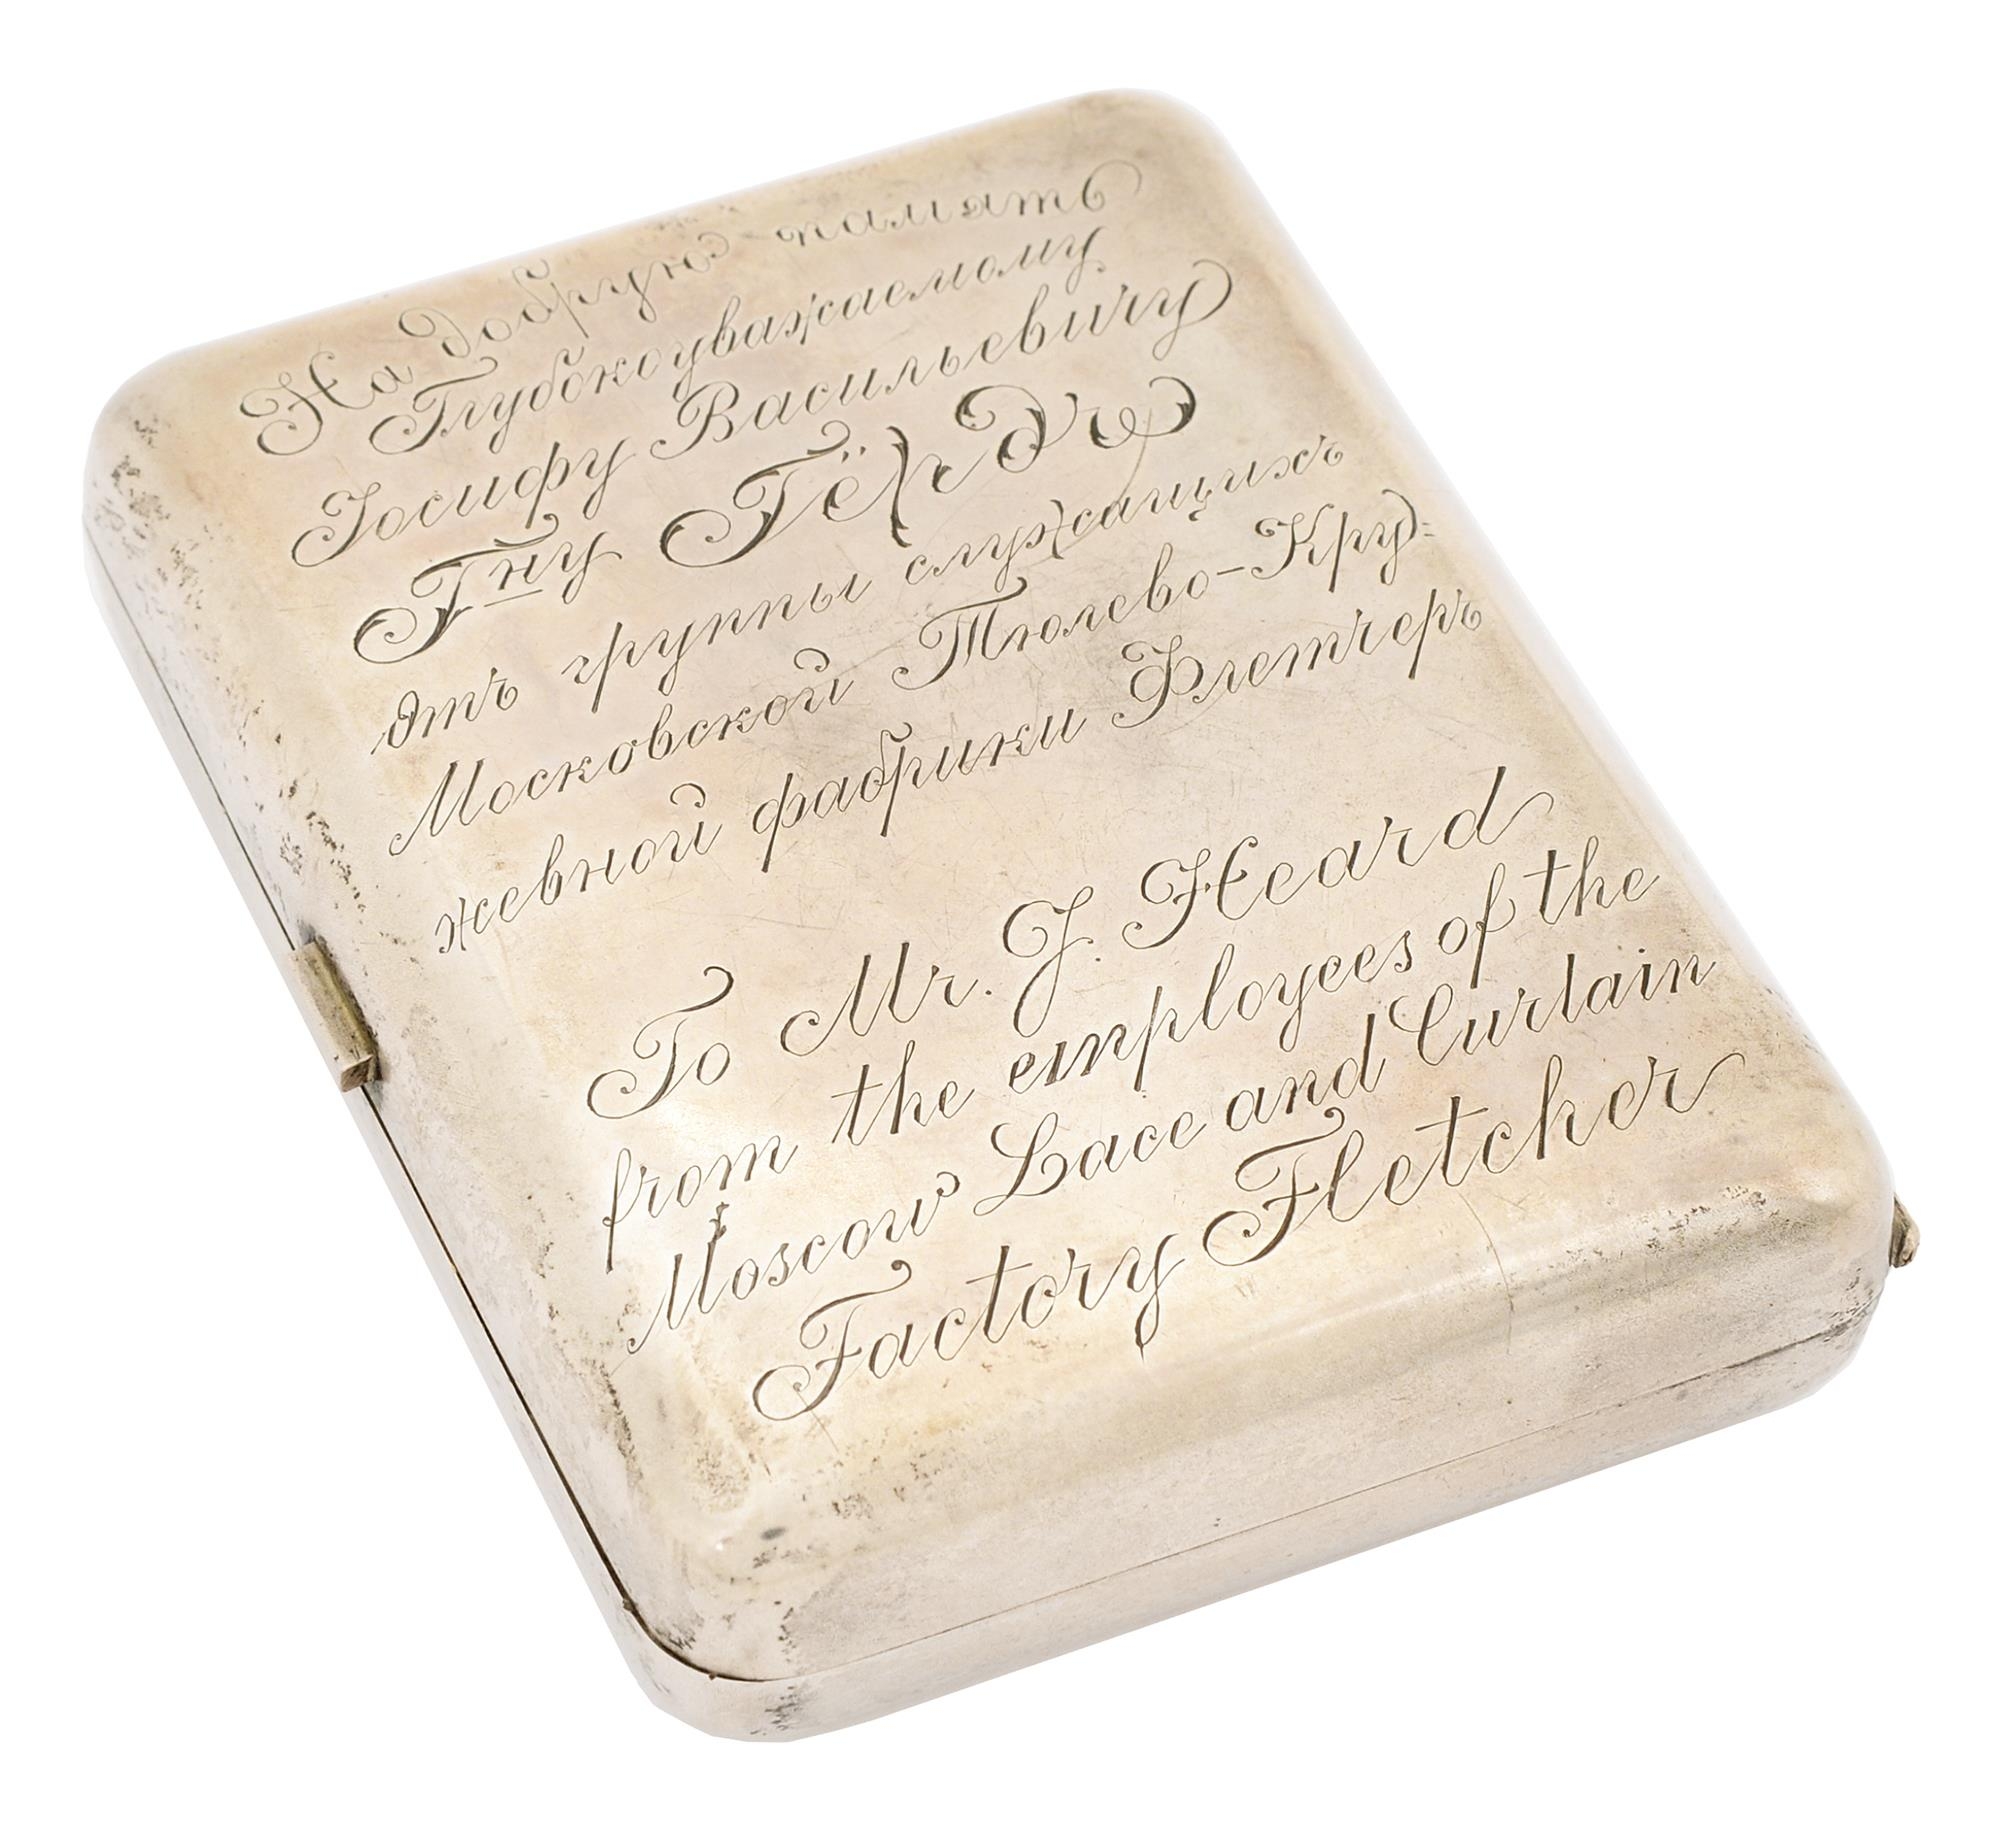 На добрую память
Глубокоуважаемому
Іосифу Васильевичу
Гну Гёрдъ
отъ группы служащихъ
Московской Тюлево-Кру=
жевной фабрики Флетчеръ
To Mr. J. Heard
from the employees of the
Moscow Lace and Curtain
Factory Fletcher